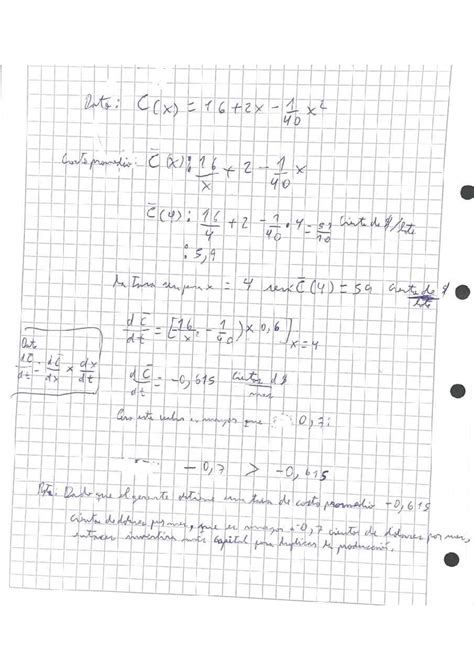 Dato: C(x) = 16 + 2x - 1/40 x²
Costo promedio: C̄(x): 16/x + 2 - 1/40 x
C̄(4): 16/4 + 2 - 1/40 · 4 = 59/10 Ciento de $/lote
: 5,9
x = 4 será C̄(4) = 59 Ciento de $/lote
dC̄/dt = [16/x - 1/40) × 0,6]x=4
Dato
dC̄/dt = dC̄/dx × dx/dt
dC̄/dt = -0,615 Cientos d $/mes
este valor es mayor que 0,7
-0,7 > -0,615
Rpta: Dado que el gerente obtiene una tasa de costo promedio -0,615
cientos de dolares por mes, que es mayor a -0,7 cientos de dolares por mes,
entonces invertira más capital para duplicar la producción.